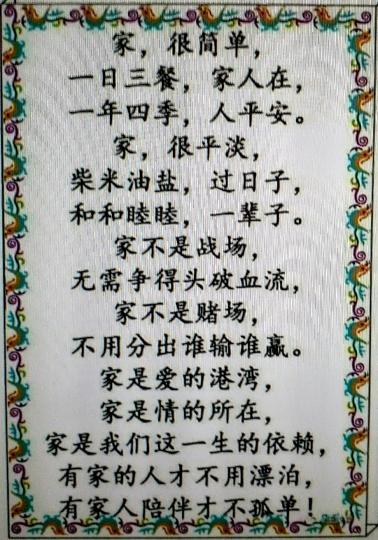 家，很简单，
一日三餐，家人在，
一年四季，人平安。
家，很平淡，
柴米油盐，过日子，
和和睦睦，一辈子。
家不是战场，
无需争得头破血流，
家不是赌场，
不用分出谁输谁赢。
家是爱的港湾，
家是情的所在，
家是我们这一生的依赖，
有家的人才不用漂泊，
有家人陪伴才不孤单！